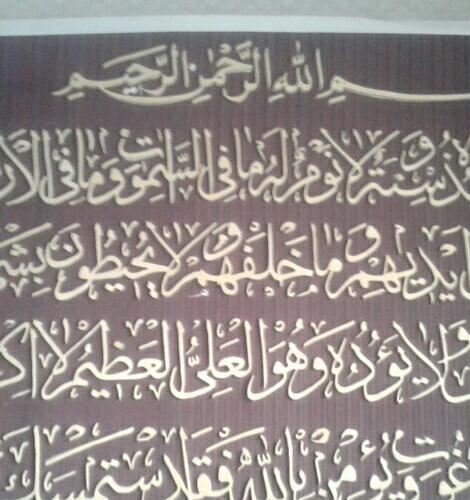 سم الله الرحمن الرحيم
سنة ولا نوم له ما في السموات وما في الأر
ايديهم وما خلفهم ولا يحيطون بشي
ولا يؤده وهو العلي العظيم لا اك
غوت ويؤمن بالله فقد ستمسك